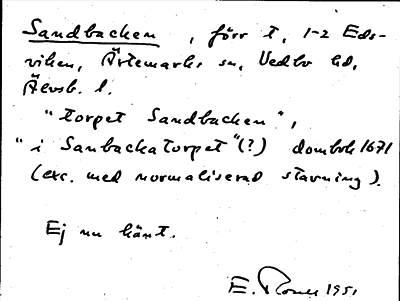 Sandbacken, förr t. 1-2 Eds-
viken, Ärtemarks sn, Vedbo hd,
Älvsb. l.
"torpet Sandbacken",
"i SanbackaTorpet"(?) dombok 1671
(exc. med normaliserad stavning).
Ej nu känt.
E. 1951